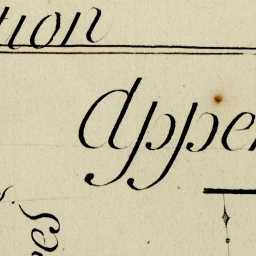 tion
Appe
es